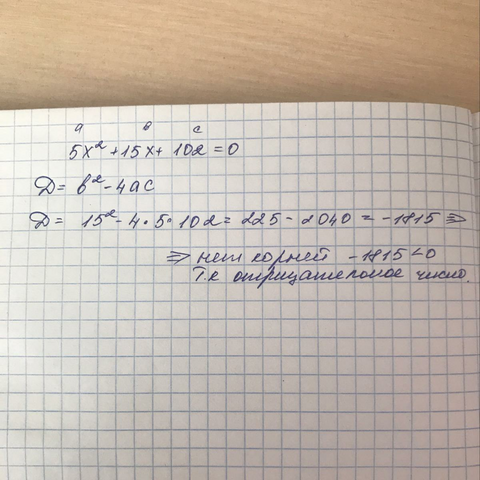 a в c
5x² + 15x + 102 = 0
Д = в² - 4ac
Д = 15² - 4 · 5 · 102 = 225 - 2040 = -1815 ⇒
⇒ нет корней -1815 < 0
Т.к отрицательное число.